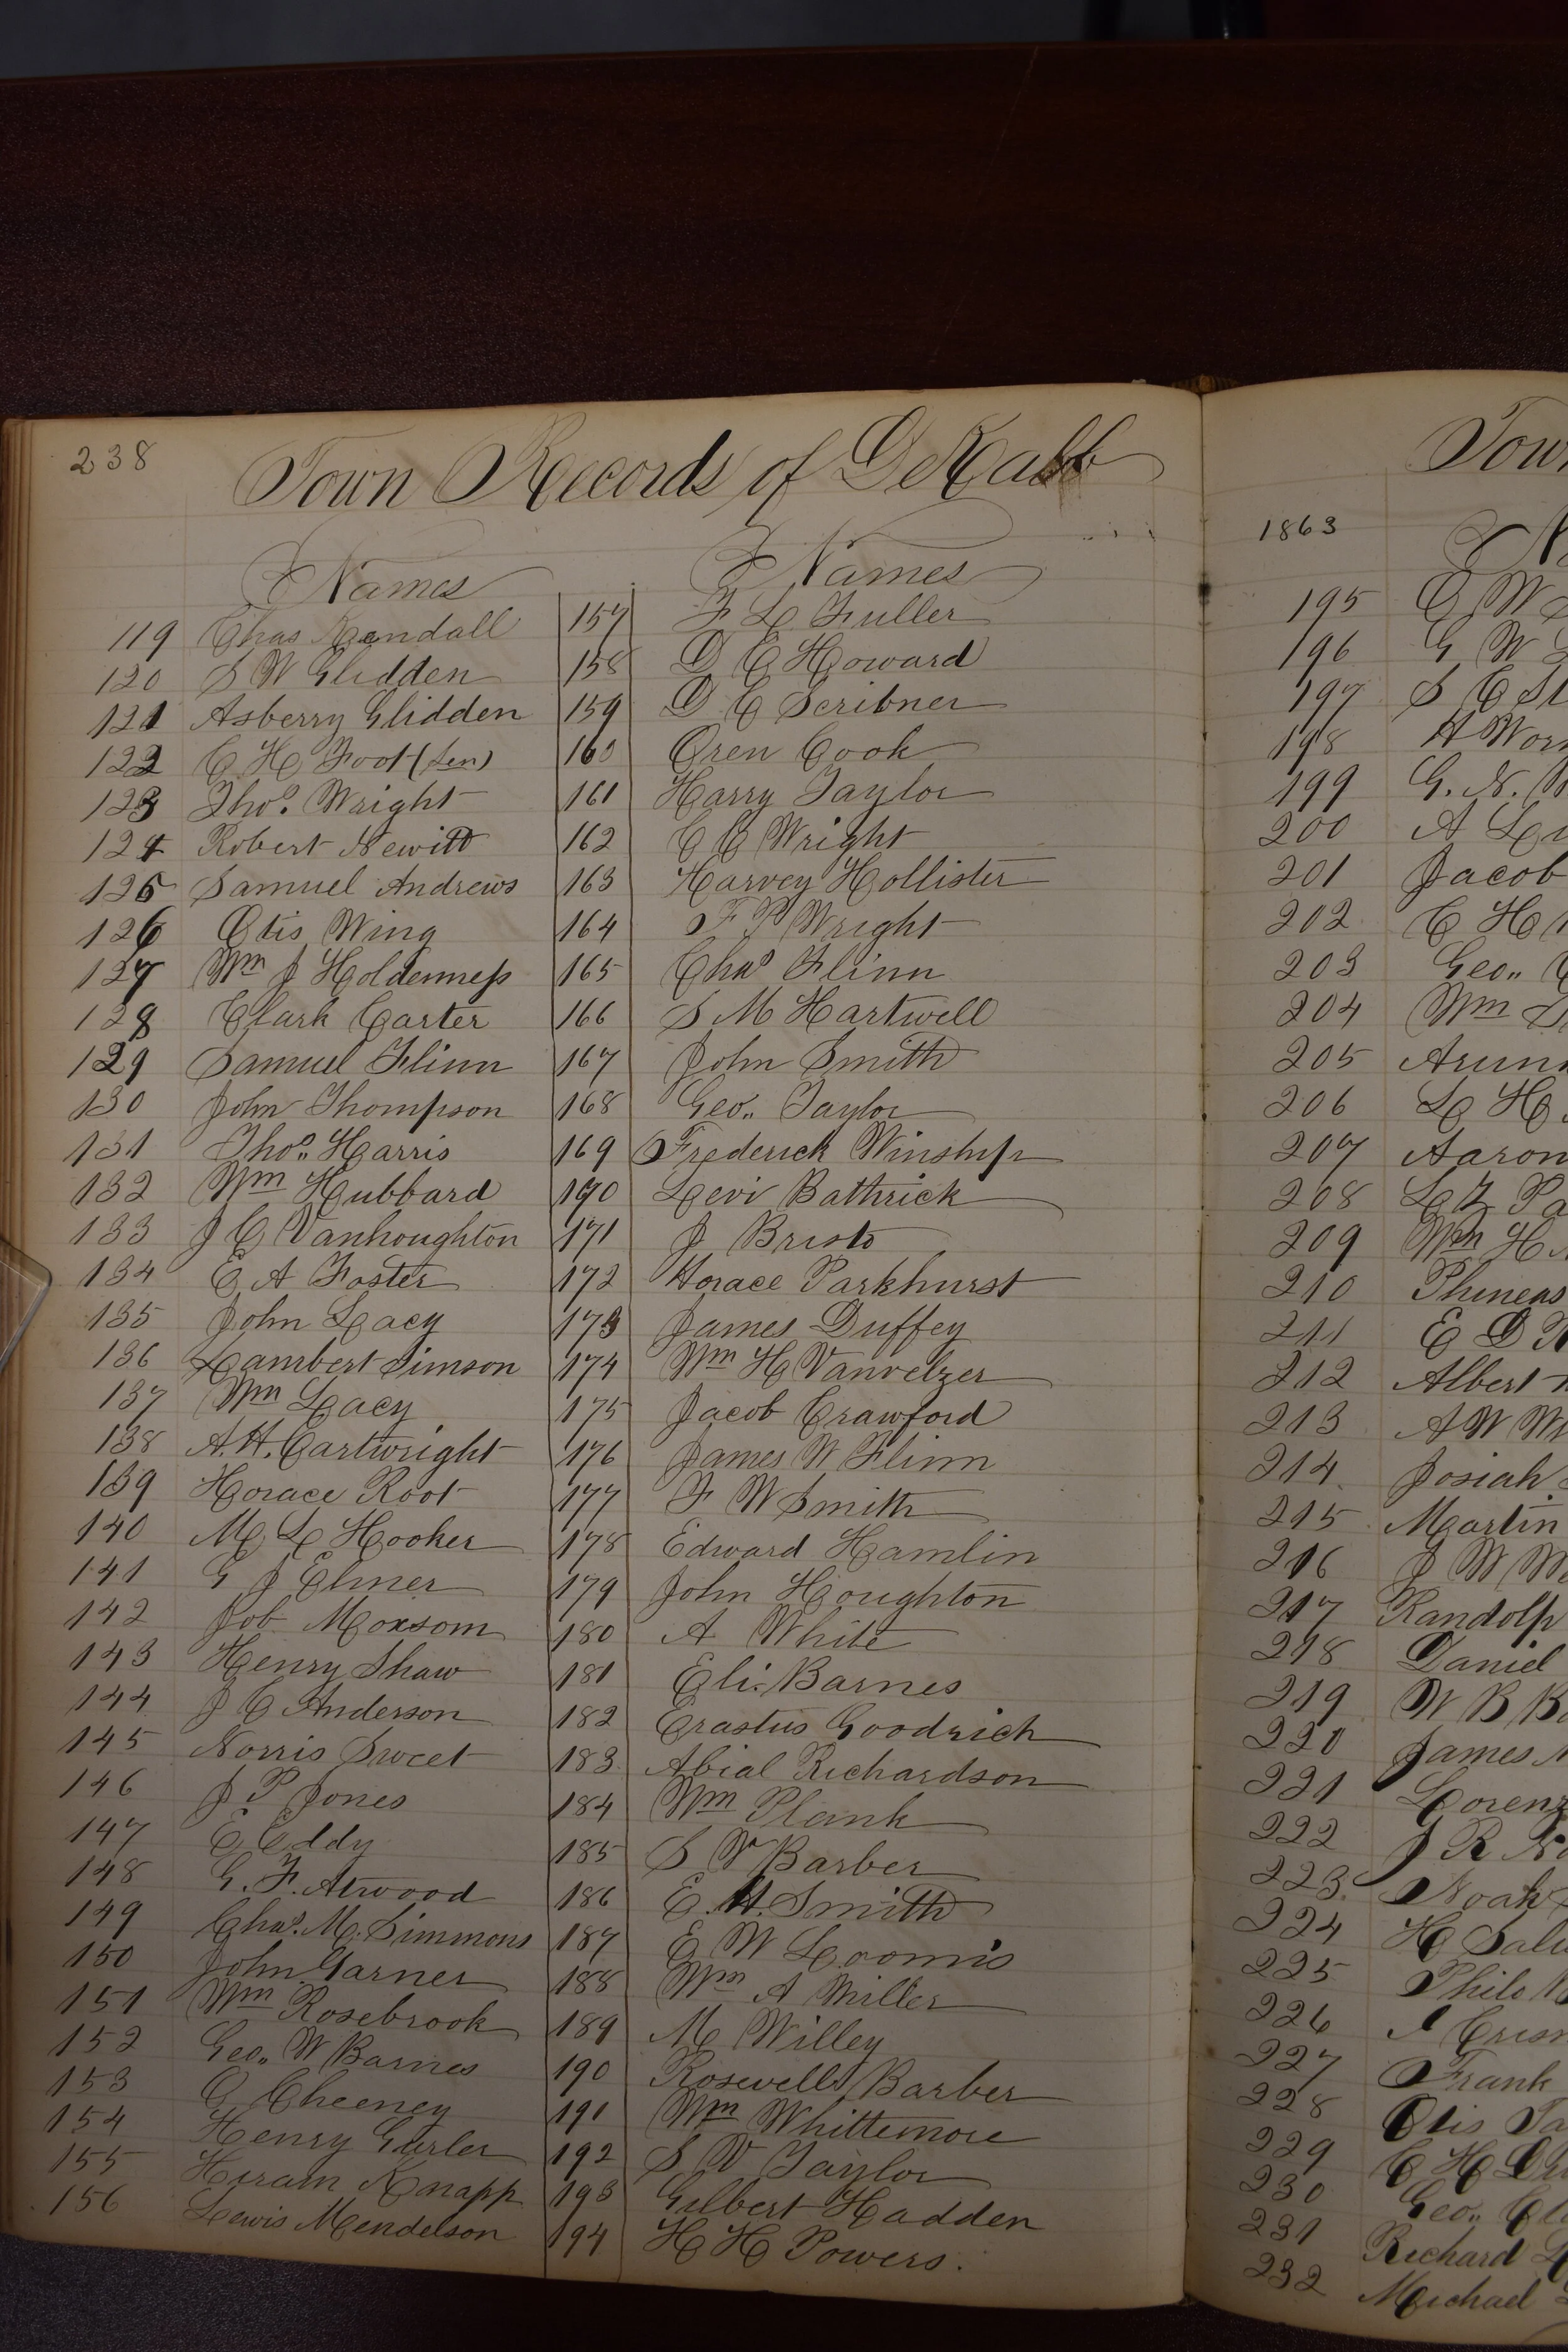 238
Town Records of DeKalb
Names
119 Chas Kendall
120 S W Glidden
121 Asberry Glidden
122 C H Foot (Sen)
123 Thos. Wright
124 Robert Newitt
125 Samuel Andrews
126 Otis Wing
127 Wm J Holderness
128 Clark Carter
129 Samuel Flinn
130 John Thompson
131 Thos. Harris
132 Wm Hubbard
133 J C Vanhoughton
134 E A Foster
135 John Lacy
136 Lambert Simson
137 Wm Lacy
138 A. H. Cartwright
139 Horace Root
140 M L Hooker
141 G J Elmer
142 Job Moxsom
143 Henry Shaw
144 J C Anderson
145 Norris Sweet
146 J P Jones
147 E Eddy
148 G. F. Atwood
149 Chas. M. Simmons
150 John Garner
151 Wm Rosebrook
152 Geo. W Barnes
153 O Cheeney
154 Henry Gurler
155 Hiram Knapp
156 Lewis Mendelson
Names
157 F L Fuller
158 D E Howard
159 D C Scribner
160 Oren Cook
161 Harry Taylor
162 C C Wright
163 Harvey Hollister
164 F P Wright
165 Chas Flinn
166 S M Hartwell
167 John Smith
168 Geo. Taylor
169 Frederick Winship
170 Levi Bathrick
171 J Bristo
172 Horace Parkhurst
173 James Duffey
174 Wm H Vanvelzer
175 Jacob Crawford
176 James W Flinn
177 F W Smith
178 Edward Hamlin
179 John Houghton
180 A White
181 Eli Barnes
182 Erastus Goodrich
183 Abial Richardson
184 Wm Plank
185 S V Barber
186 E. H. Smith
187 E W Loomis
188 Wm A Miller
189 M Willey
190 Rosewell Barber
191 Wm Whittemore
192 S V Taylor
193 Gilbert Hadden
194 H H Powers.
Tow
1863
195
196 G W
197 S
198 H Wor
199 G. N.
200 A
201 Jacob
202 C H
203 Geo.
204 Wm
205 Arun
206 L H
207 Aaron
208 L Z Pa
209 Wm H
210 Phineas
211 E D
212 Albert
213 A W
214 Josiah
215 Martin
216 J W
217 Randolp
218 Daniel
219 W B B
220 James
221 Lorenz
222 J R
223 Noah
224 H Sali
225 Philo
226
227 Frank
228 Otis
229 C H
230 Geo.
231 Richard
232 Michael